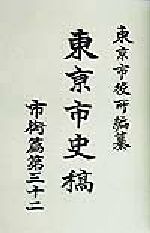 東京市役所編纂
東京市史稿
市街篇第三十二